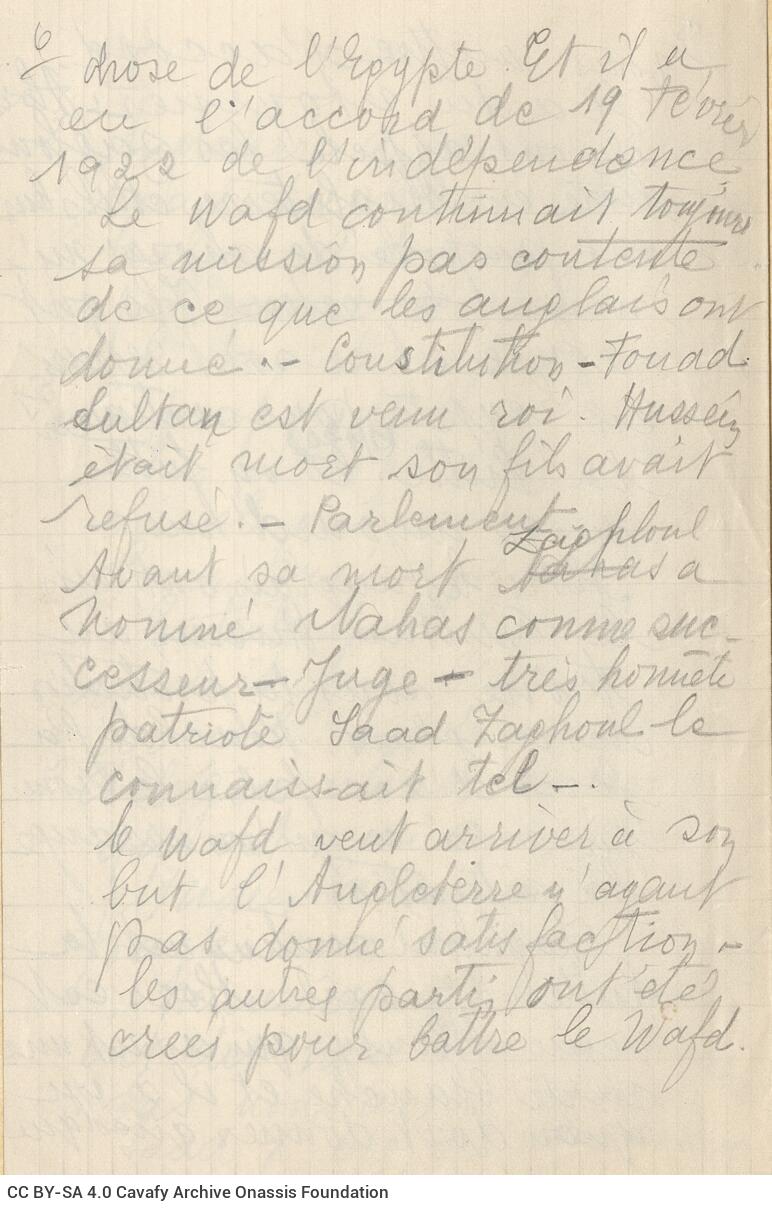 6
chose de l'Egypte. Et il a
eu l'accord de 19 Février
1922 de l'indépendance
Le Wafd continuait toujours
sa mission pas contente
de ce que les anglais ont
donné. – Constitution – Fouad
Sultan est venu roi. Hussein
était mort son fils avait
refusé. – Parlement
Zaghloul
Avant sa mort Nahas a
nommé Nahas comme suc-
cesseur – Juge – très honnête
patriote Saad Zaghoul le
connaissait tel –.
le Wafd veut arriver à son
but l'Angleterre n'ayant
pas donné satisfaction –
les autres partis ont été
crees pour battre le Wafd.
CC BY-SA 4.0 Cavafy Archive Onassis Foundation